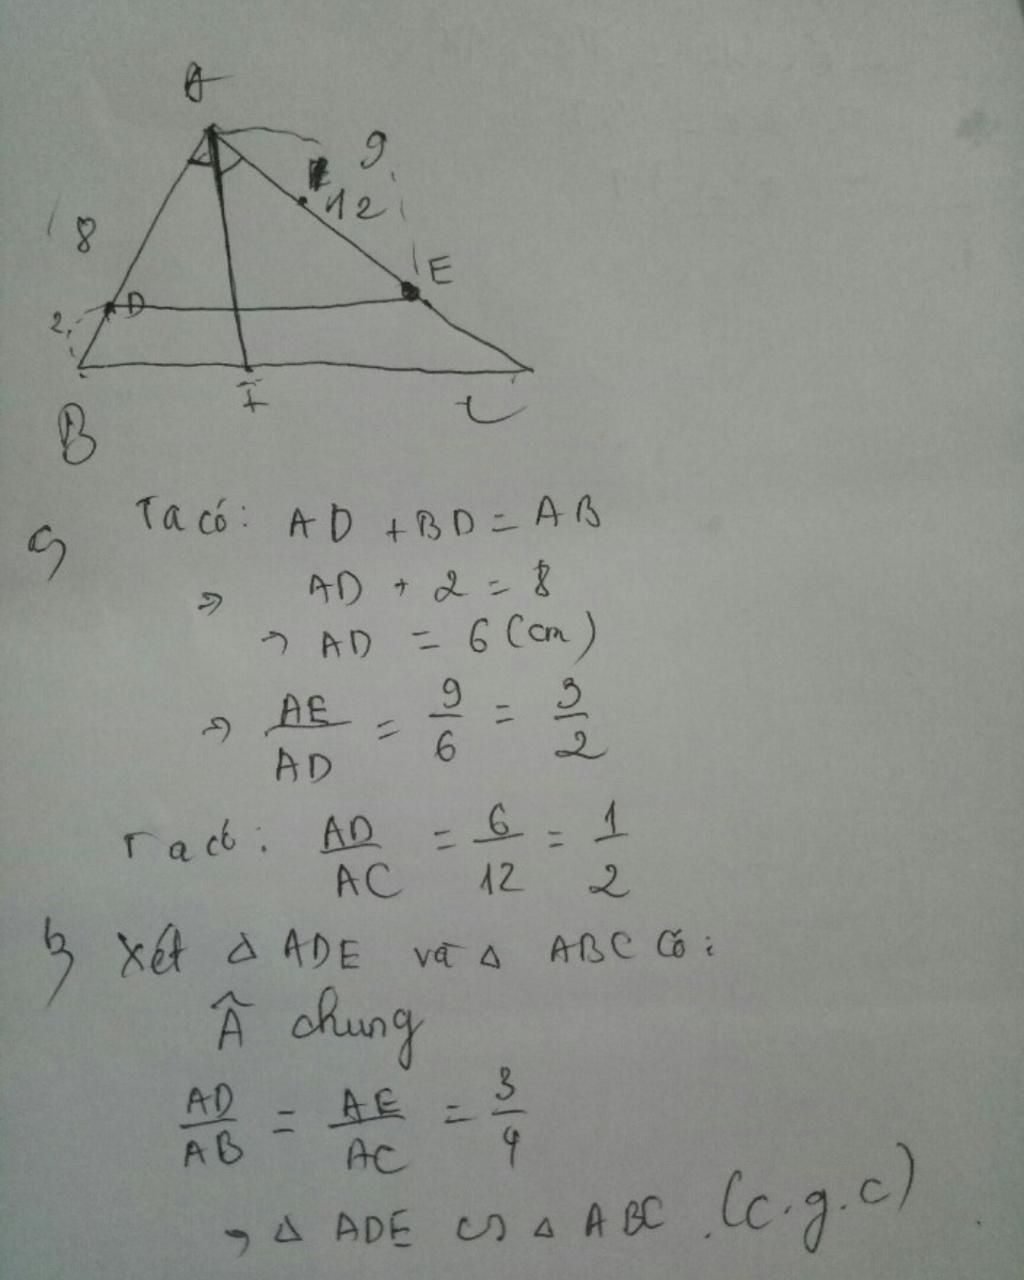 A
9
12
8
E
D
2
I
B
C
a) Ta có: AD + BD = AB
=> AD + 2 = 8
=> AD = 6 (cm)
=> AE/AD = 9/6 = 3/2
Ta có: AD/AC = 6/12 = 1/2
b) Xét Δ ADE và Δ ABC có:
Â chung
AD/AB = AE/AC = 3/4
=> Δ ADE ∽ Δ ABC. (c.g.c)